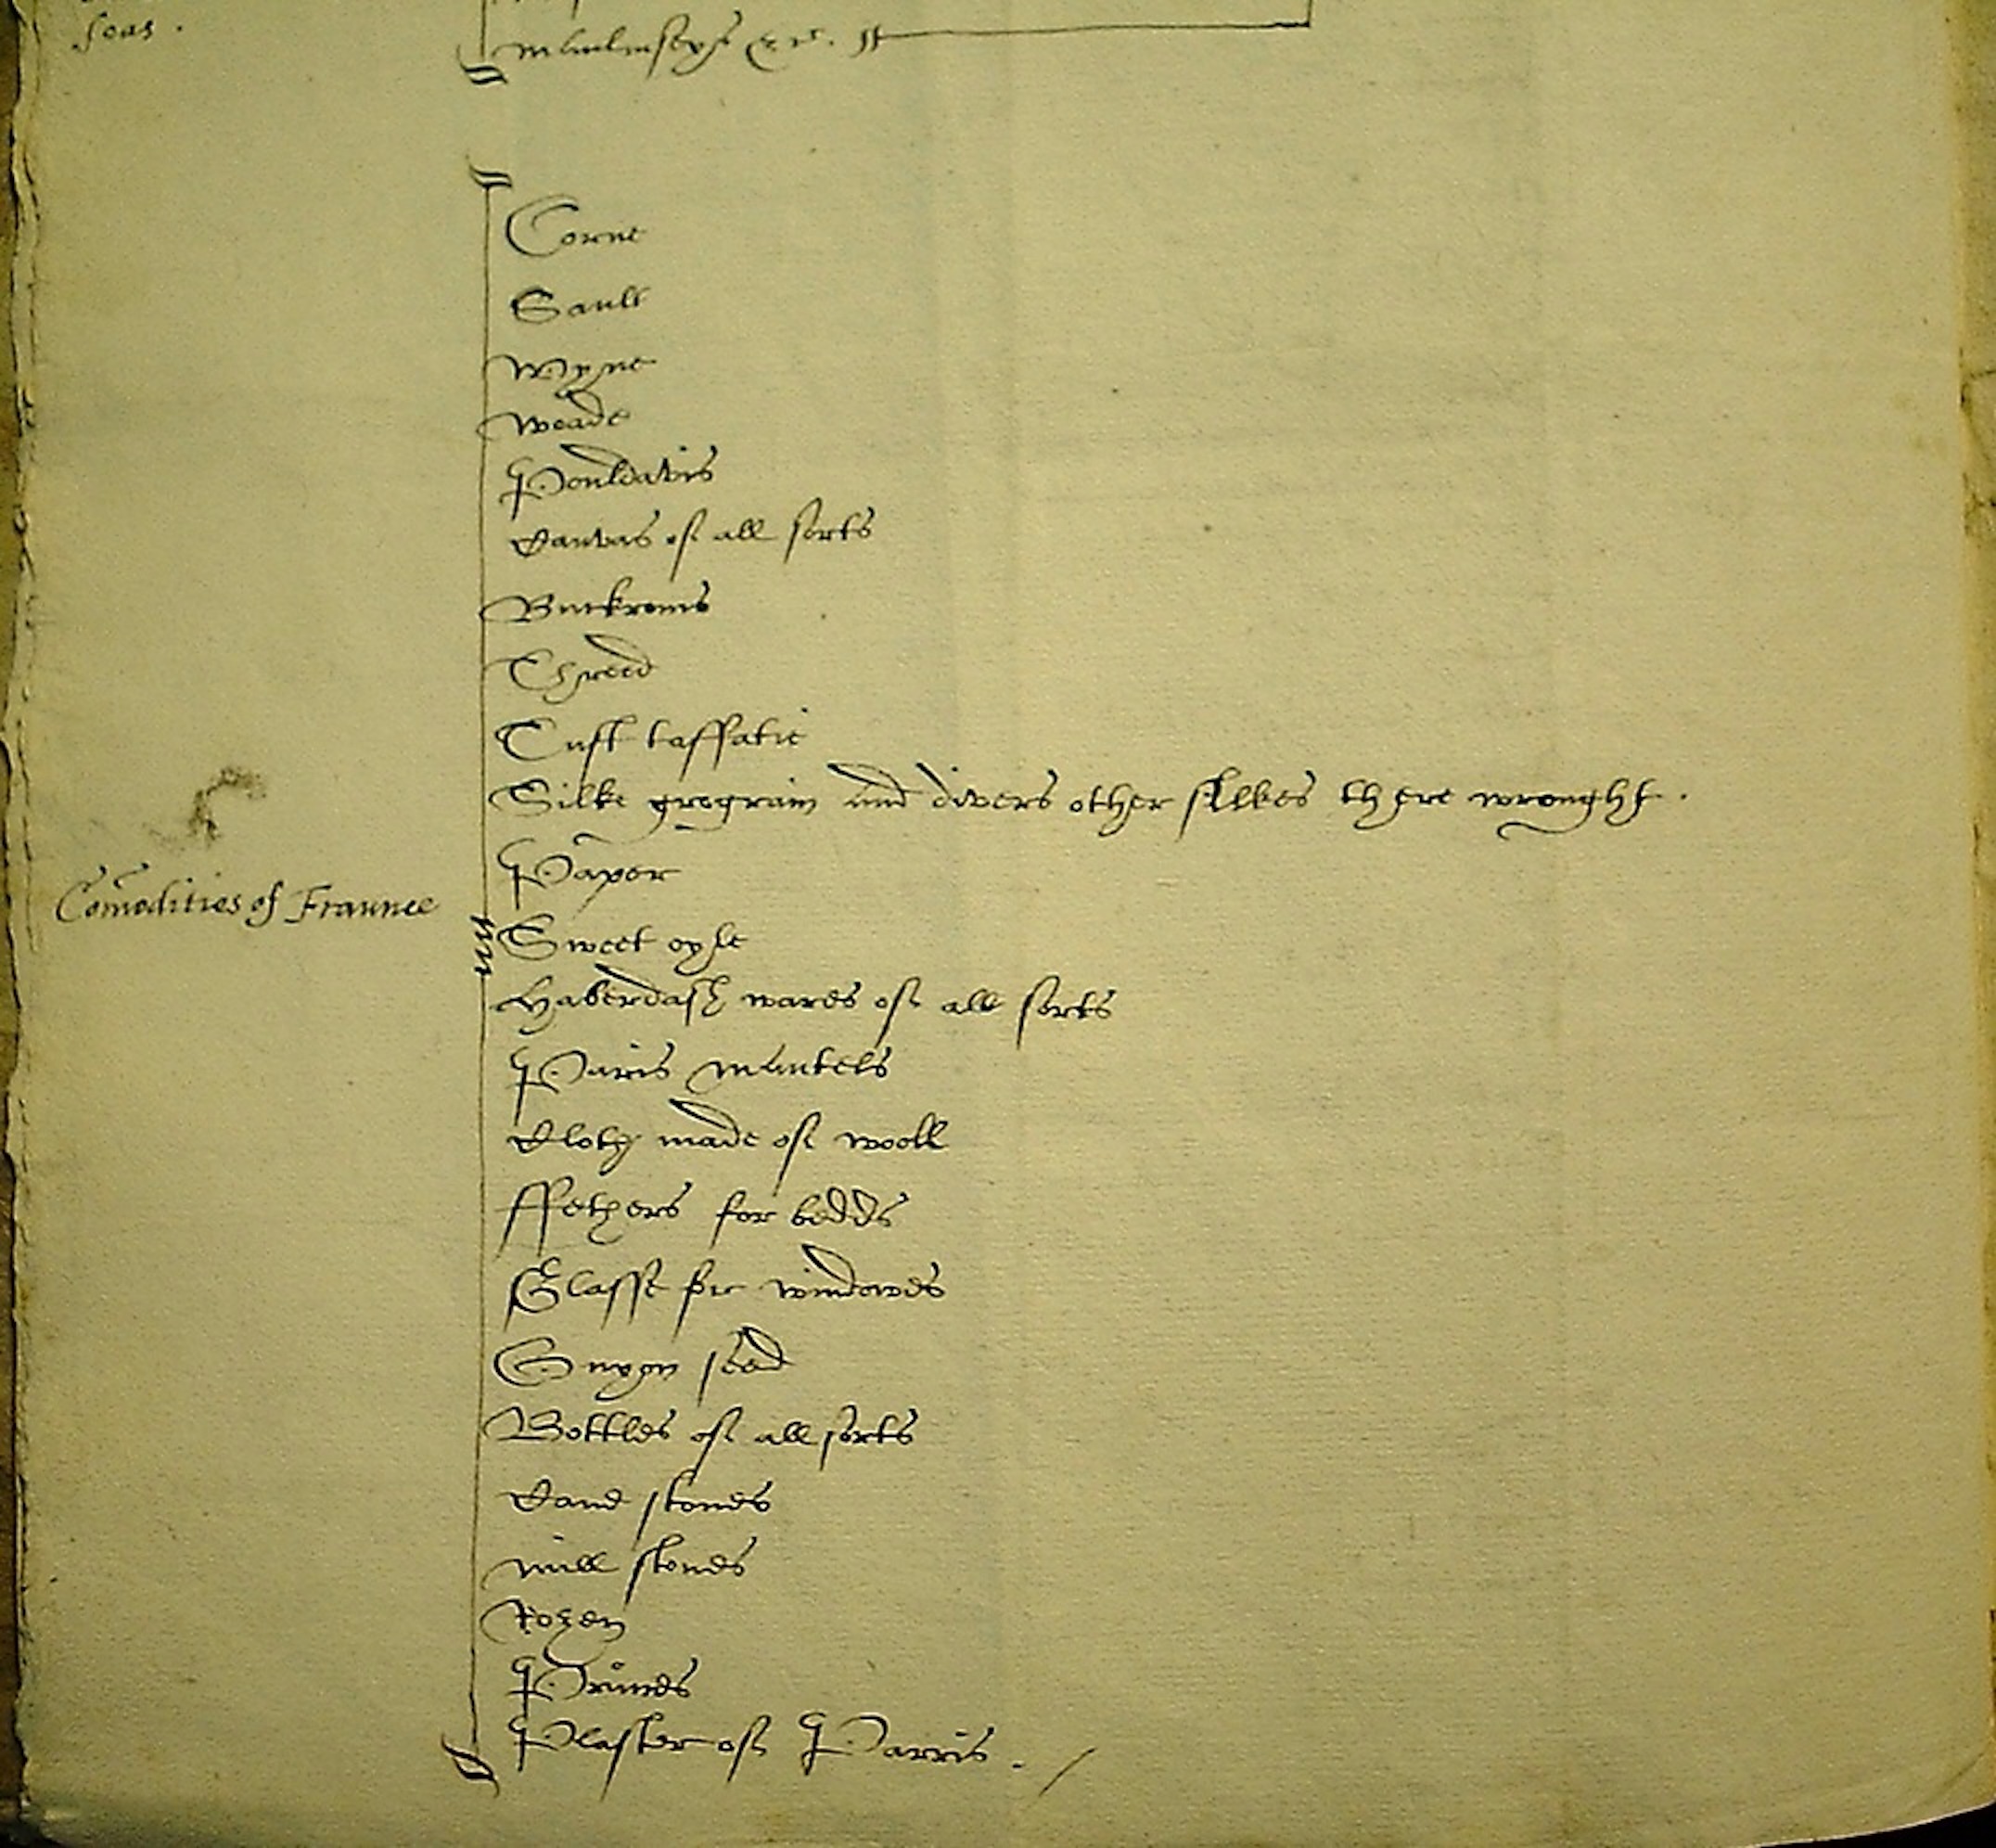 seas .
malmseys &c.
Corne
Sault
Wyne
Woade
Pouldavis
Canvas of all sorts
Buckroms
Threed
Tuft taffatie
Silke grogram and divers other silkes there wrought .
Paper
Comodities of Fraunce
Sweet oyle
Haberdash wares of all sorts
Paris mantels
Cloth made of wooll
ffethers for bedds
Glasse for windowes
Onyon seed
Bottles of all sorts
Cane stones
mill stones
Rozen
Prunes
Plaster of Parris .